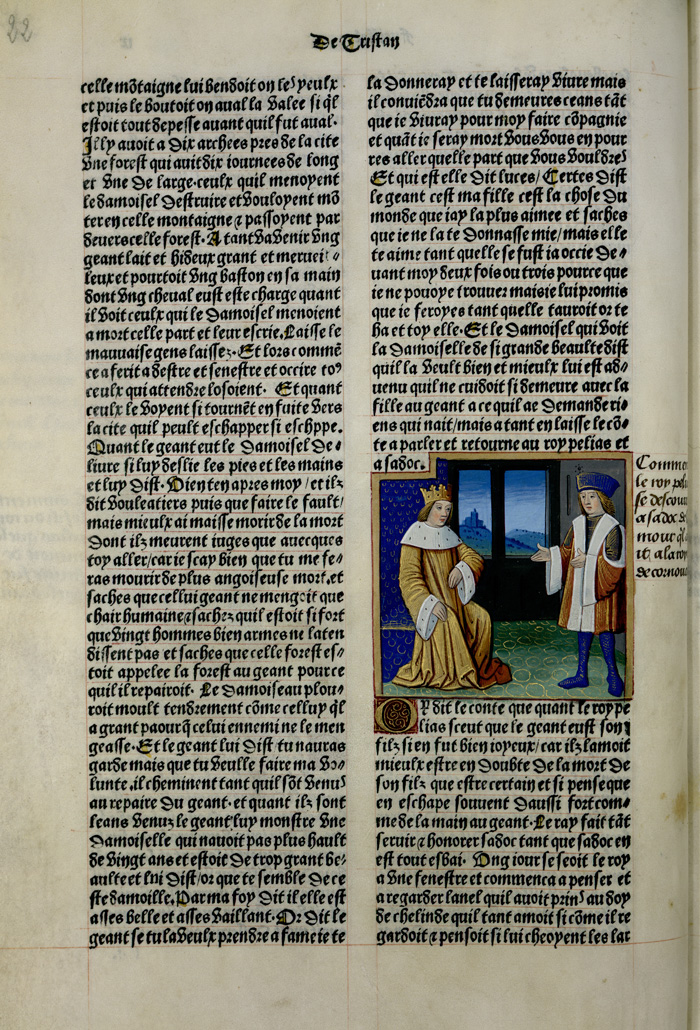 22
De Tristan
celle mõtaigne lui bendoit on les yeulx
et puis le boutoit on aual la valee si q̃l
estoit tout depesse auant quil fut aual.
Illy auoit a dix archees pres de la cite
vne forest qui auit dix iournees de long
et vne de large. ceulx quil menoyent
le damoisel destruire et vouloyent mõ
ter en celle montaigne ⁊ passoyent par
deuers celle forest. A tant va venir vng
geant lait et hideux grant et merueil⸗
leux et pourtoit vng baston en sa main
dont vng cheual eust este charge quant
il voit ceulx qui le damoisel menoient
a mort celle part et leur escrie. Laisse le
mauuaise gens laisses. Et lors commē
ce a ferit a destre et senestre et occire tos
ceulx qui attendre losoient. Et quant
ceulx le voyent si tournēt en fuite vers
la cite qui peult eschapper si eschppe.
Quant le geant eut le damoisel de⸗
liure si luy deslie les pies et les mains
et luy dist. Dien ten apres moy / et ilz
dit vouleatiers puis que faire le fault /
mais mieulx ai maisse morir de la mort
dont ilz meurent iuges que auecques
toy aller / car ie scay bien que tu me fe⸗
ras mourir de plus angoiseuse mort. et
saches que cellui geant ne mengoit que
chair humaine ⁊ sachez quil estoit si fort
que vingt hommes bien armes ne laten
dissent pas et saches que celle forest es⸗
toit appelee la forest au geant pour ce
quil il repairoit. Le damoiseau plou⸗
roit moult tendrement cõme celluy q̃l
a grant paour q̃ celui ennemi ne le men
geasse. Et le geant lui dist tu nauras
garde mais que tu veulle faire ma vo⸗
lunte. il cheminent tant quil sõt venus
au repaire du geant. et quant ilz sont
leans venuz le geant luy monstre vne
damoiselle qui nauoit pas plus hault
de vingt ans et estoit de trop grant be⸗
aulte et lui dist / or que te semble de ce
ste damoille. Par ma foy dit il elle est
asses belle et asses vaillant. Or dit le
geant se tu la veulx prendre a fame ie te
la donneray et te laisseray viure mais
il conuiēdra que tu demeures ceans tãt
que ie viuray pour moy faire cõpagnie
et quãt ie seray mort vous vous en pour
res aller quelle part que vous vouldres
Et qui est elle dit luces / Certes dist
le geant cest ma fille cest la chose du
monde que iay la plus aimee et saches
que ie ne la te donnasse mie / mais elle
te aime tant quelle se fust ia occie de⸗
uant moy deux fois ou trois pource que
ie ne pouoye trouuer mais ie lui promis
que ie feroyes tant quelle tauroit or te
ha et toy elle. Et le damoisel qui voit
la damoiselle de si grande beaulte dist
quil la veult bien et mieulx lui est ad⸗
uenu quil ne cuidoit si demeure auec la
fille au geant a ce quil ae demande ri⸗
ens qui nait / mais a tant en laisse le cõ⸗
te a parler et retourne au roy pelias et
a sadoc.
Comme
le roy pel
se descou
a sadoc d
mour q̃l
it, a la ro
de cornou
Or dit le conte que quant le roy pe
lias sceut que le geant eust son
filz si en fut bien ioyeux / car ilz lamoit
mieulx estre en doubte de la mort de
son filz que estre certain et si pense que
en eschape souuent daussi fort com⸗
me de la main au geant. Le ray fait tãt
seruir ⁊ honorer sadoc tant que sadoc en
est tout esbai. Ung iour se seoit le roy
a vne fenestre et commenca a penser et
a regarder lanel quil auoit prins au doy
de chelinde quil tant amoit si cõme il re
gardoit ⁊ pensoit si lui cheoyent les lar